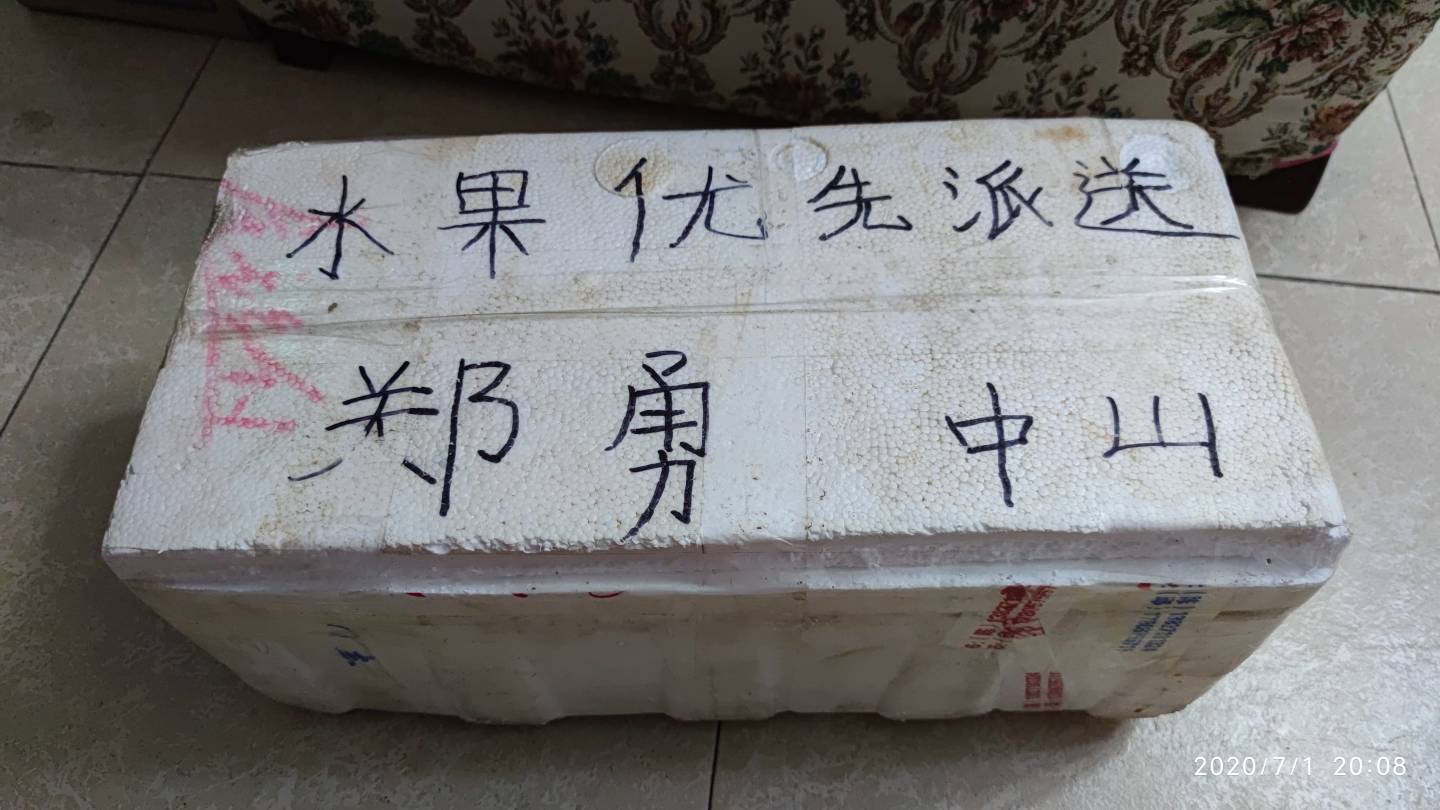 水果优先派送
郑勇 中山
2020/7/1 20:08